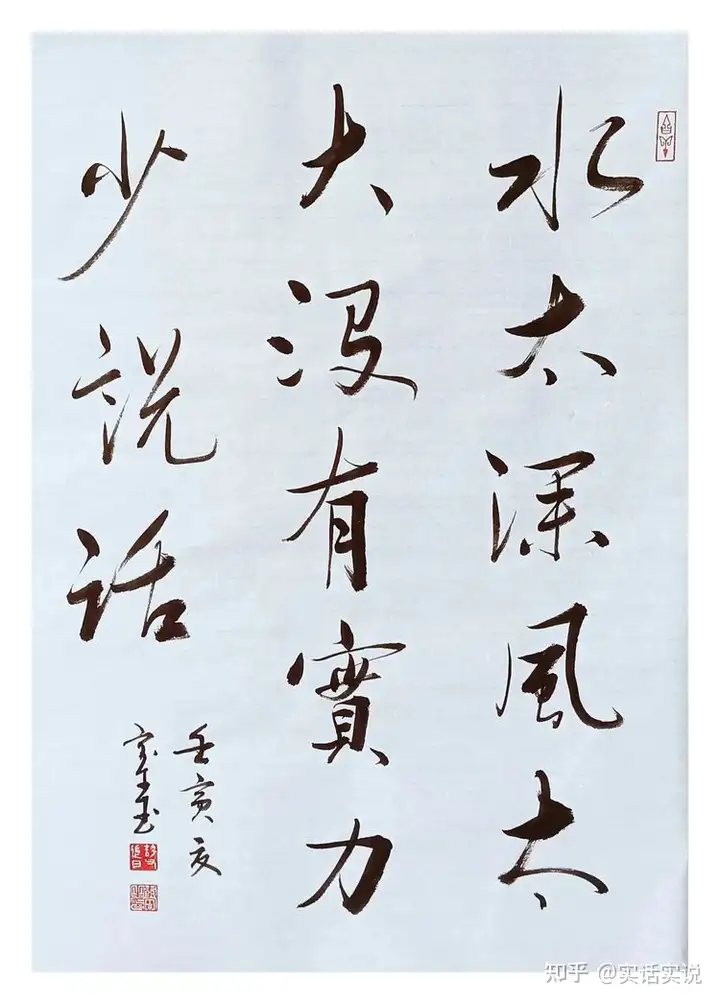 水太深風太
大沒有實力
少説話
壬寅夏
知乎 @实话实说